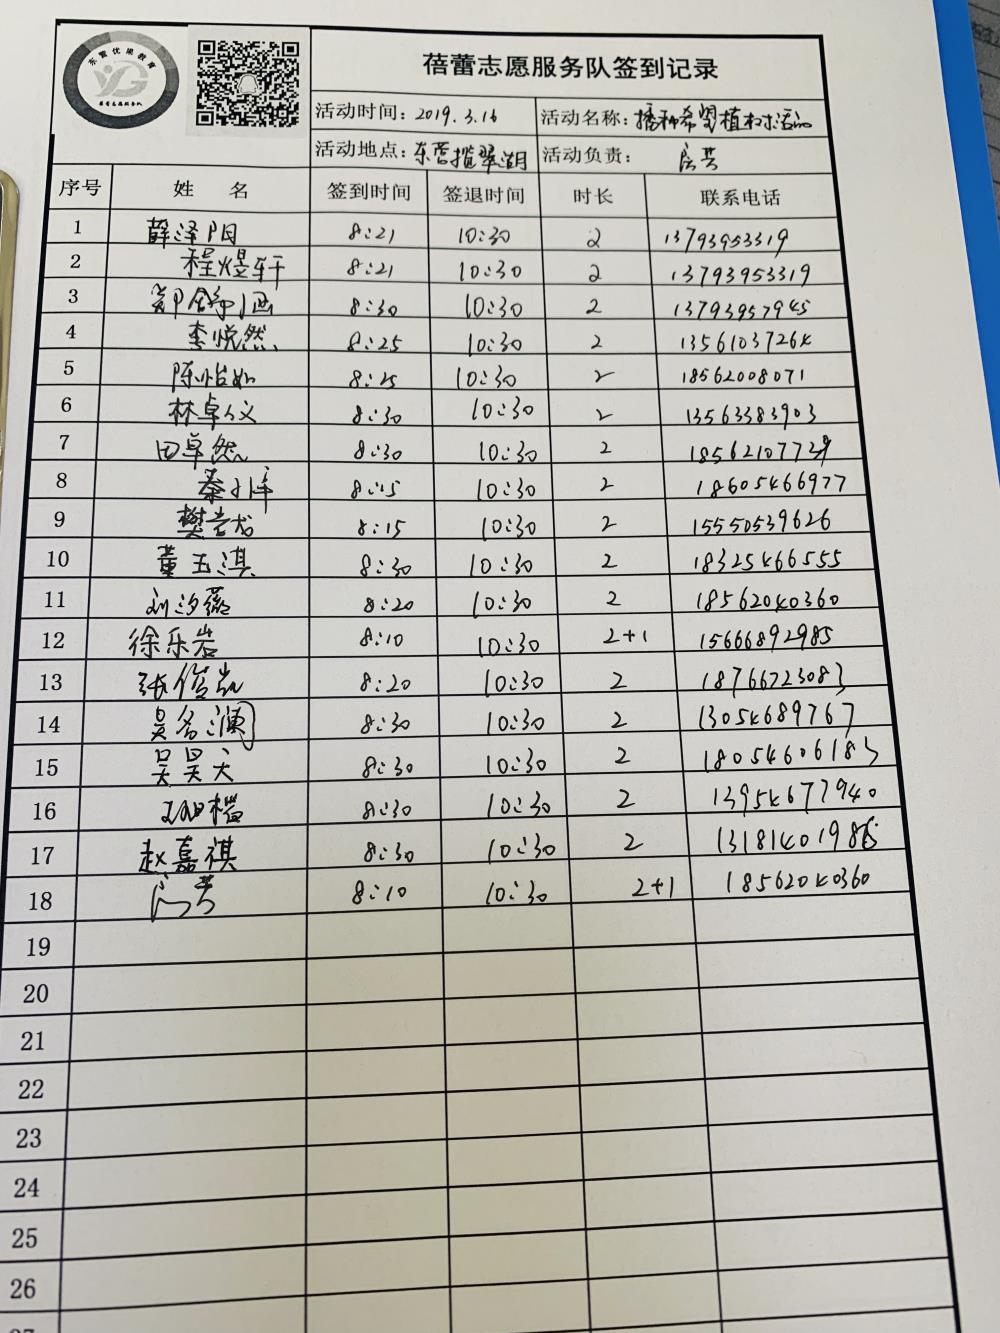 东营优果教育
蓓蕾志愿服务队
蓓蕾志愿服务队签到记录
活动时间：2019.3.16 活动名称：播种希望植树活动
活动地点：东营揽翠湖 活动负责：
序号 姓 名 签到时间 签退时间 时长 联系电话
1 薛泽阳 8:21 10:30 2 13793953319
2 程煜轩 8:21 10:30 2 13793953319
3 郑舒 8:30 10:30 2 13793957945
4 李悦然 8:25 10:30 2 13561037264
5 陈怡如 8:25 10:30 2 18562008071
6 林卓仪 8:30 10:30 2 13563383903
7 田卓然 8:30 10:30 2 18562107729
8 秦 8:15 10:30 2 18605466977
9 樊 8:15 10:30 2 15550539626
10 董玉淇 8:30 10:30 2 18325466555
11 刘汐蕊 8:20 10:30 2 18562040360
12 徐乐岩 8:10 10:30 2+1 15666892985
13 张俊凯 8:20 10:30 2 18766723083
14 吴名澜 8:30 10:30 2 13054689767
15 吴昊天 8:30 10:30 2 18054606183
16 8:30 10:30 2 13954677940
17 赵嘉祺 8:30 10:30 2
18 8:10 10:30 2+1 18562040360
19
20
21
22
23
24
25
26